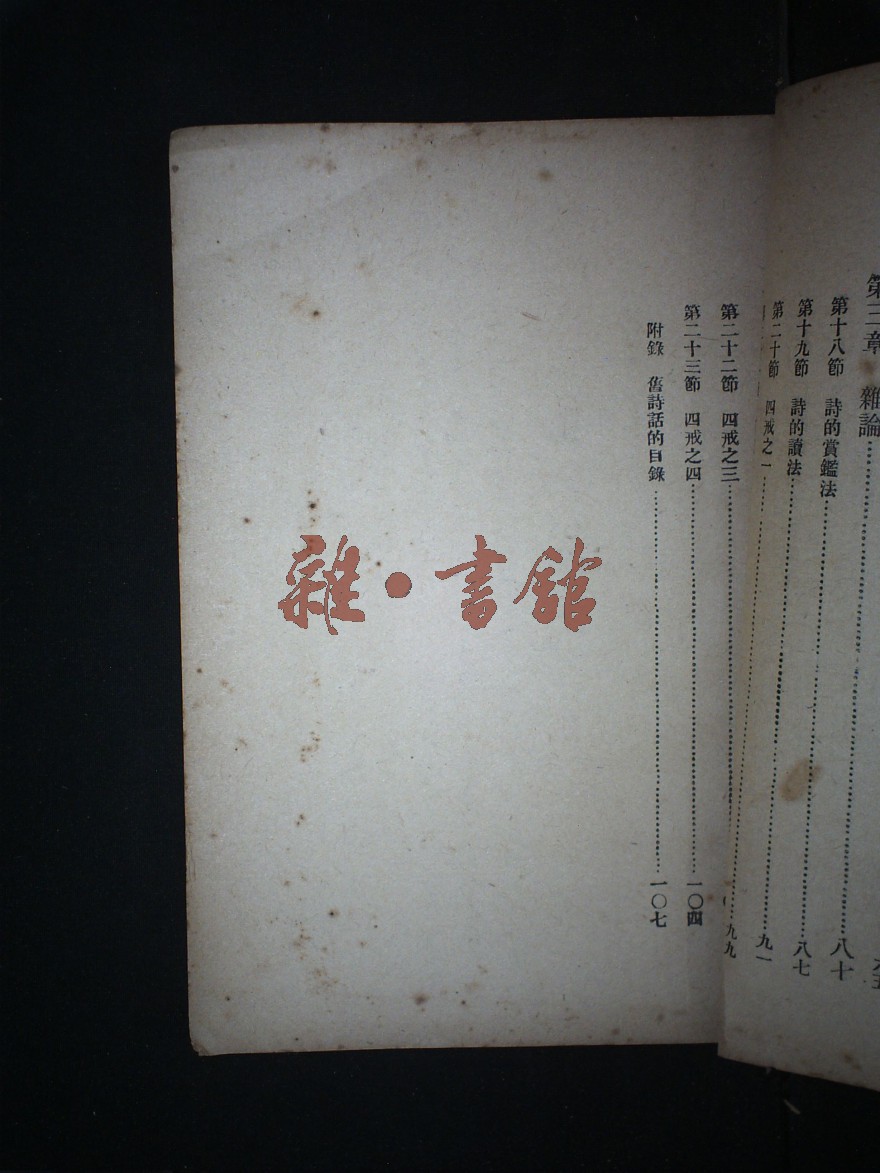 第三章 雜論
第十八節 詩的賞鑑法 八十
第十九節 詩的讀法 八七
第二十節 四戒之一 九一
第二十二節 四戒之三 九九
第二十三節 四戒之四 一〇四
附錄 舊詩話的目錄 一〇七
雜·書館